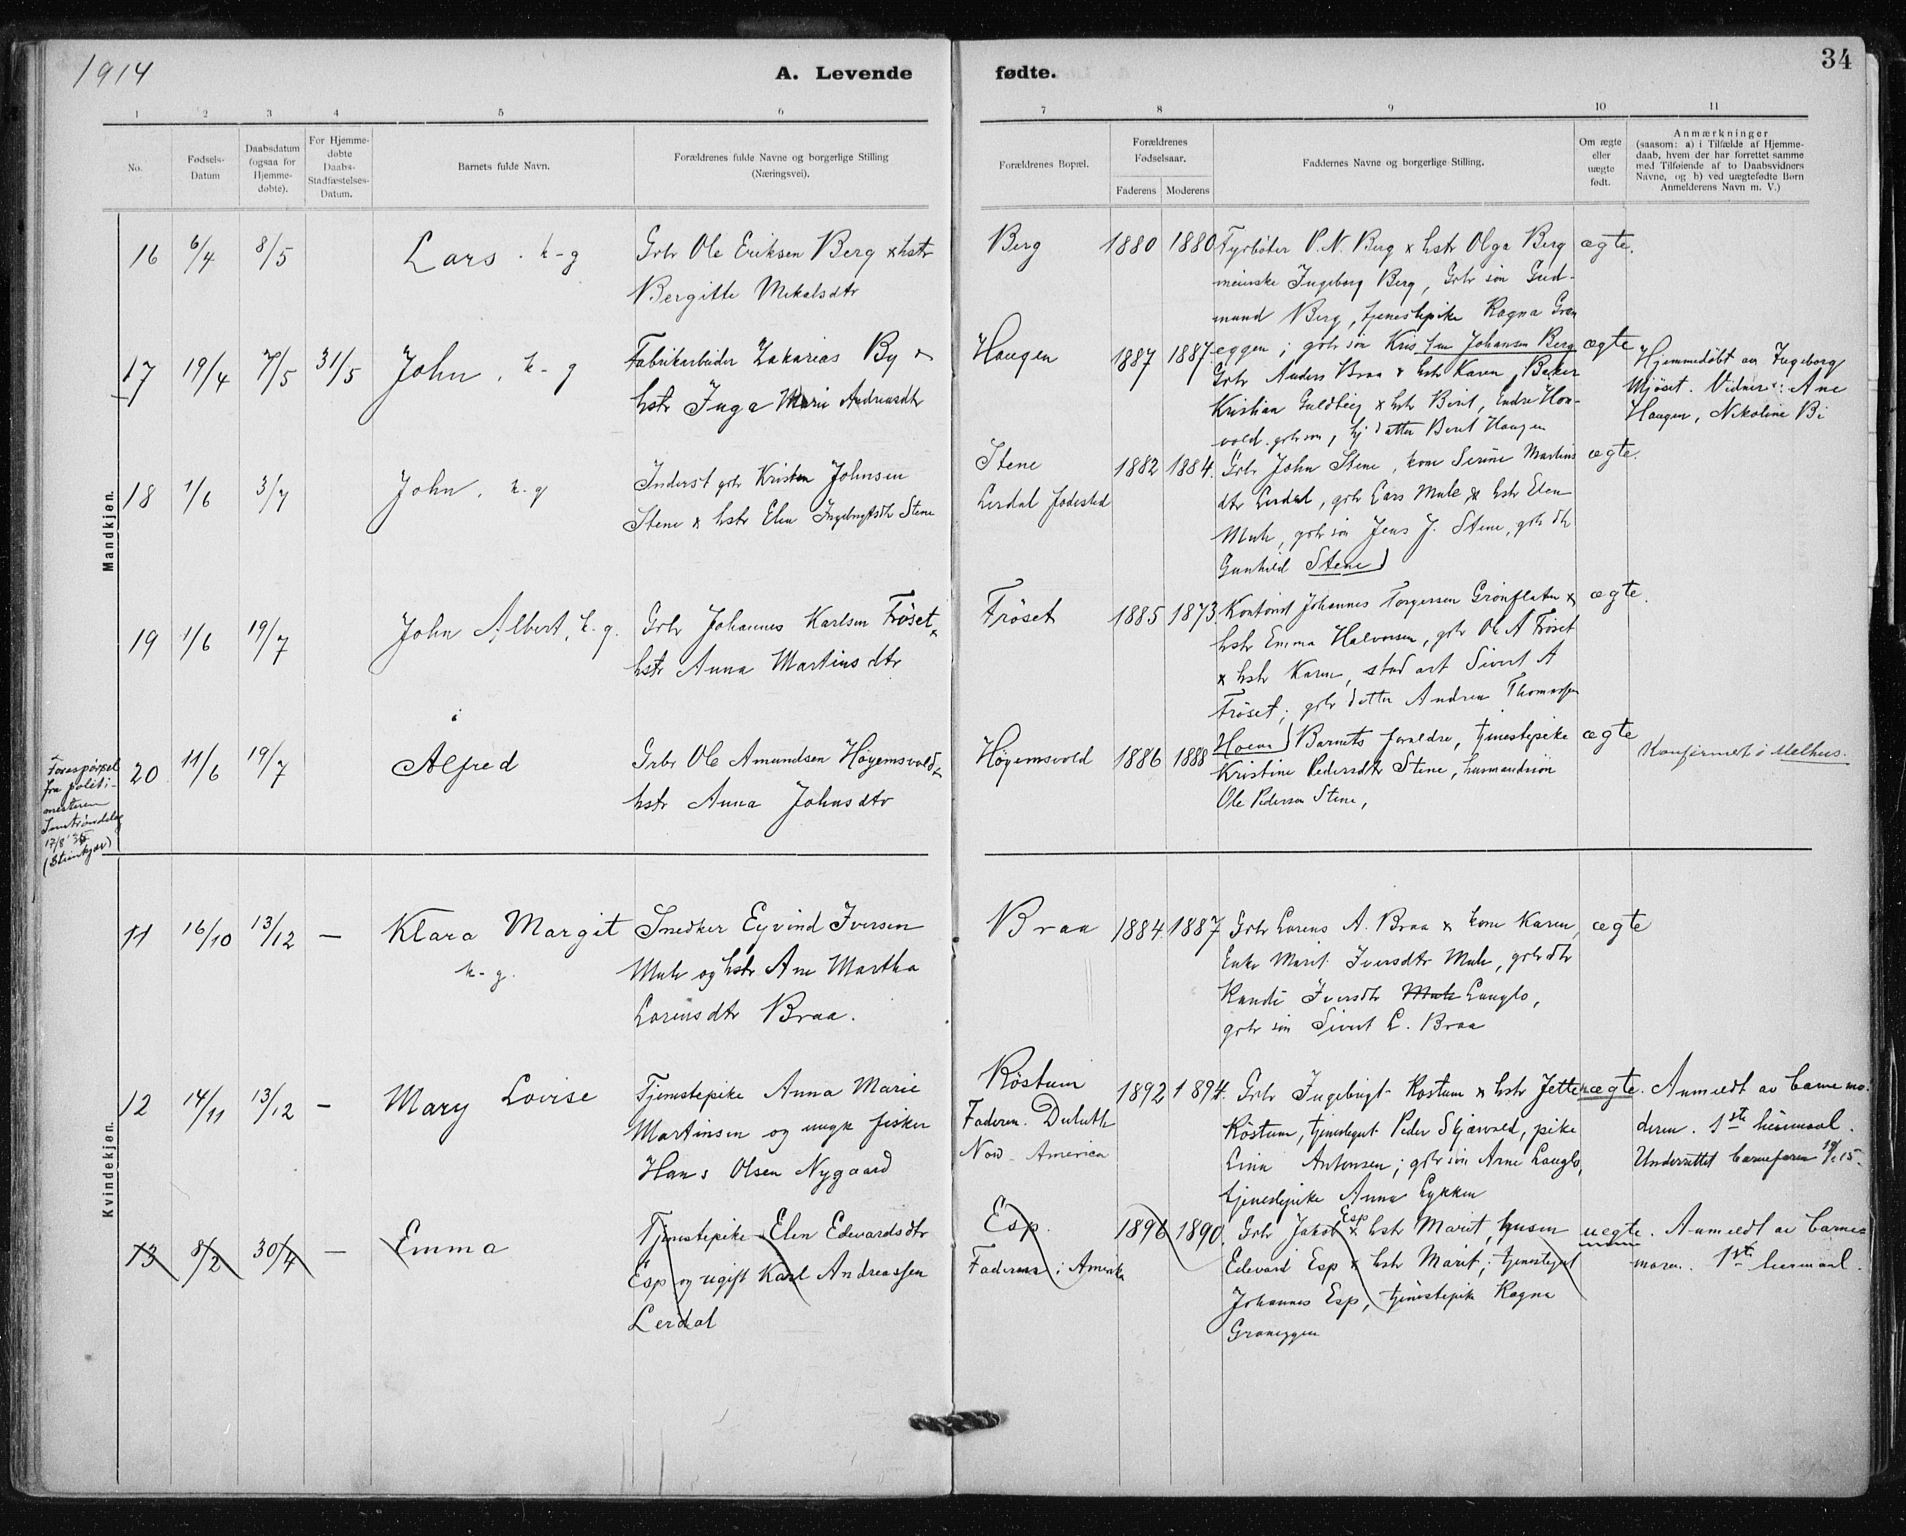 1914
A. Levende fødte.
34
1 2 3 4 5 6 7 8 9 10 11
No.
Fødsels-
Datum
Daabsdatum
(ogsaa for
Hjemme-
døbte).
For Hjemme-
døbte
Daabs-
Stadfæstelses-
Datum.
Barnets fulde Navn.
Forældrenes fulde Navne og borgerlige Stilling
(Næringsvei).
Forældrenes Bopæl.
Forældrenes
Fødselsaar.
Faderens Moderens
Faddernes Navne og borgerlige Stilling.
Om ægte
eller
uægte
født.
Anmærkninger
(saasom: a) i Tilfælde af Hjemme-
daab, hvem der har forrettet samme
med Tilføiende af to Daabsvidners
Navne, og b) ved uægtefødte Børn
Anmelderens Navn m. V.)
Mandkjøn.
16 6/4 8/5 Lars . k-g
Gbr Ole Eriksen Berg x hstr
Bergitte Mikalsdtr
Berg 1880 1880
Fyrbøter P. N. Berg x hstr Olga Berg
Ingeborg Berg, Gbr søn Gud-
mund Berg, tjenestepike Ragna Gran
eggen; gbr søn Johansen Berg
ægte.
17 19/4 7/5 31/5 John . k-g
Fabrikarbeider Zakarias By x
hstr Inga Marie Andreasdtr
Haugen 1887 1887
Gbr Anders Braa x hstr Karen, Baker
Kristian Guldberg x hstr Berit, Endre Hon-
vold gbr søn, datter Berit Haugen
ægte
Hjemmedøbt av Ingeborg
Mjøset. Vidner: Ane
Haugen, Nikoline Bi
18 1/6 3/7 John . k-g
Inderst gbr Kristen Johnsen
Stene x hstr Elen Ingebrigtsdtr Stene
Stene
Lerdal fødested
1882 1884
Gbr John Stene, kone Serine Martins
dtr Lerdal, gbr Lars Mule x hstr Elen
Mule, gbr søn Jens J. Stene, gbr dtr
Gunhild Stene
ægte.
19 1/6 19/7 John Albert, k-g.
Gbr Johannes Karlsen Frøset x
hstr Anna Martinsdtr
Frøset 1885 1873
Kontorist Johannes Torgersen Grønflaten x
hstr Emma Halvorsen, gbr Ole A Frøset
x hstr Karen, stud art Sivert A
Frøset; gbr datter Andrea Thomassen
Hoeva
ægte.
20 11/6 19/7 Alfred
Gbr Ole Amundsen Høyemsvold x
hstr Anna Johnsdtr
Høyemsvold 1886 1888
Barnets foreldre, tjenestepike
Kristine Pedersdtr Stene, husmandssøn
Ole Pederson Stene,
ægte
Konfirmert i Melhus.
Forespørsel
fra politi-
mesteren
17/8
(Steinkjær)
Kvindekjøn.
11 16/10 13/12 — Klara Margit
k-g.
Snedker Eyvind Iversen
Mule og hstr Ane Martha
Lorensdtr Braa.
Braa 1884 1887
Gbr Lorens A. Braa x kone Karen,
Enke Marit Iversdtr Mule, gbr dtr
Randi Iversdtr Mule Langlo,
gbr søn Sivert L. Braa
ægte
12 14/11 13/12 — Mary Lovise
Tjenestepike Anna Marie
Martinsen og ungk fisker
Hans Olsen Nygaard
Röstum
Faderen. Duluth
Nord-America
1892 1894
Gbr Ingebrigt Rostum x hstr Jette
Röstum, tjenestegut Peder Skjærvold, pike
Lina Antonsen; gbr søn Arne Langlo,
tjenestepike Anna Lykken
uægte.
Anmeldt av barnemo-
deren. 1ste leiermaal.
Underrettet barnefaren 19/1 15.
13 8/2 30/4 — Emma
Tjenestepike Elen Edevardsdtr
Esp og ugift Karl Andreassen
Lerdal
Esp.
Faderen i Amerika
1896 1890
Gbr Jakob Esp x hstr Marit, husm
Edevard Esp x hstr Marit; tjenestegut
Johannes Esp, tjenestepike Ragna
Graneggen
uegte.
Anmeldt av barne-
moren. 1ste leiermaal.